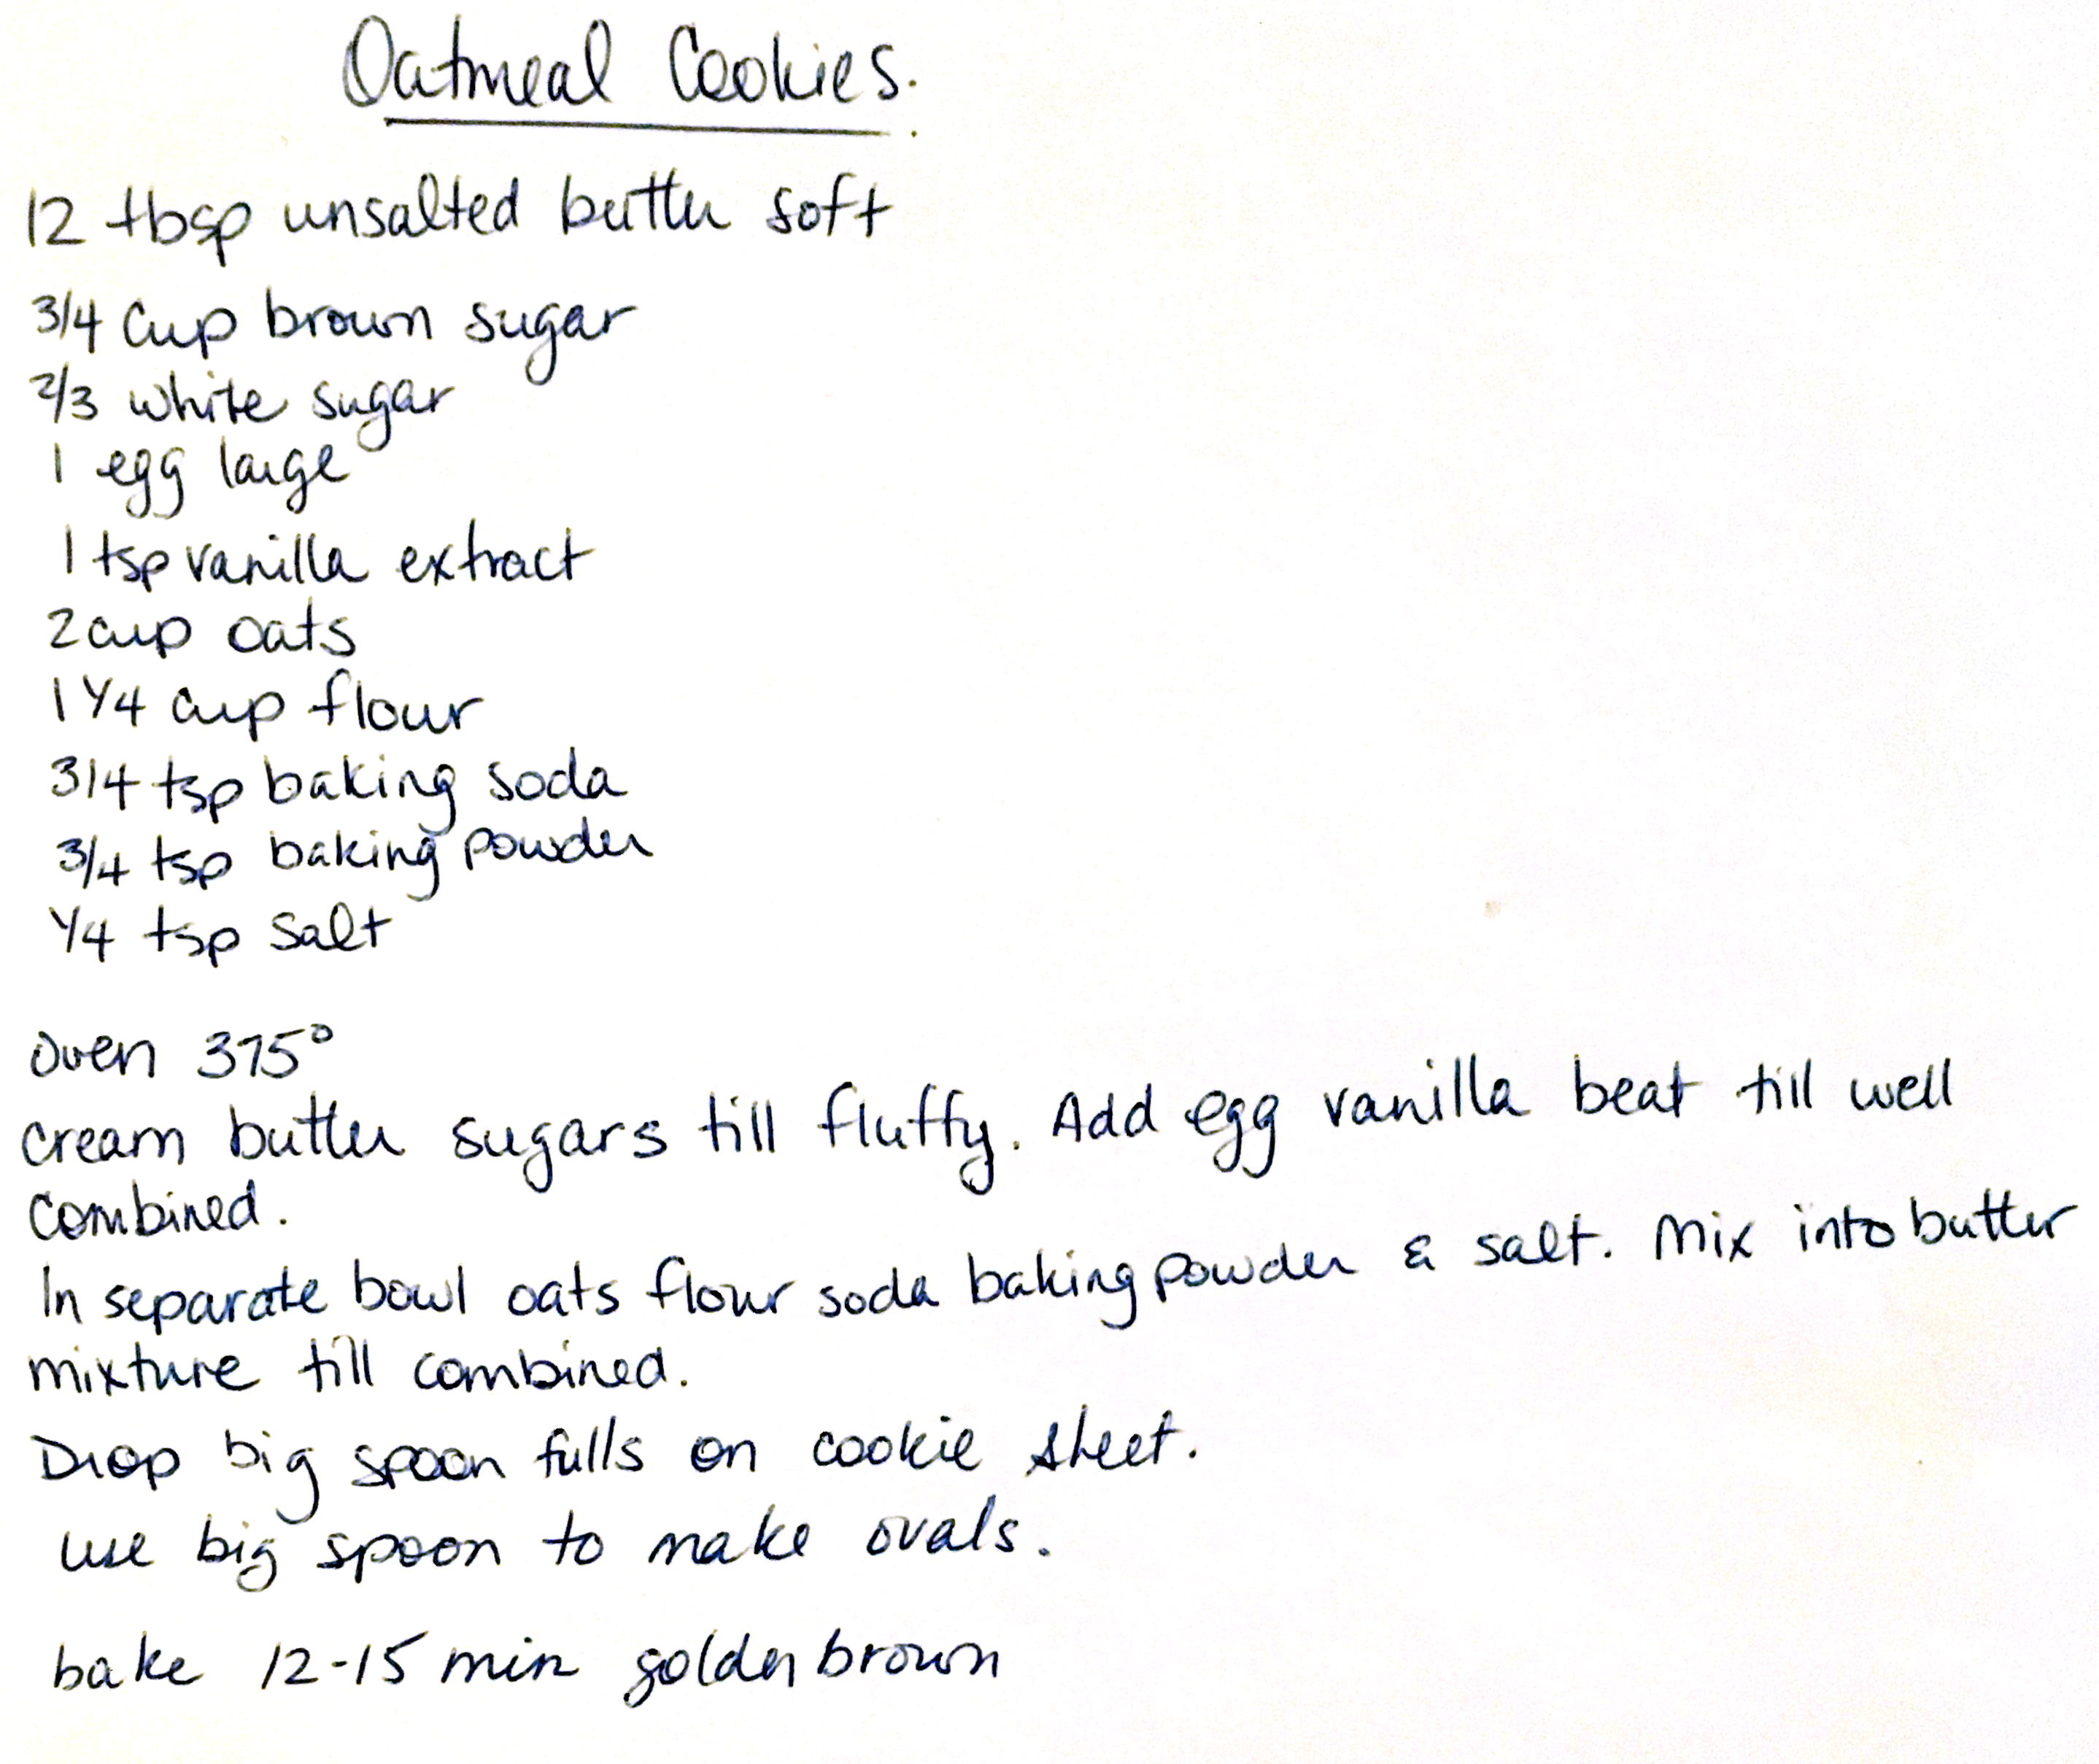 Oatmeal Cookies.
12 tbsp unsalted butter soft
3/4 cup brown sugar
2/3 white sugar
1 egg large
1 tsp vanilla extract
2 cup oats
1 1/4 cup flour
3/4 tsp baking soda
3/4 tsp baking powder
1/4 tsp salt
Oven 375°
Cream butter sugars till fluffy. Add egg vanilla beat till well
combined.
In separate bowl oats flour soda baking powder & salt. Mix into butter
mixture till combined.
Drop big spoon fulls on cookie sheet.
use big spoon to make ovals.
bake 12-15 min golden brown